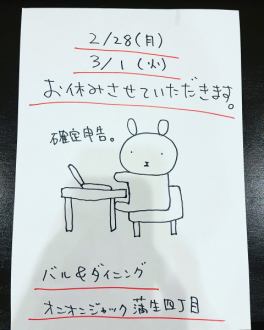 2/28(月)
3/1(火)
お休みさせていただきます。
確定申告。
バル&ダイニング
オニオンジャック 蒲生四丁目